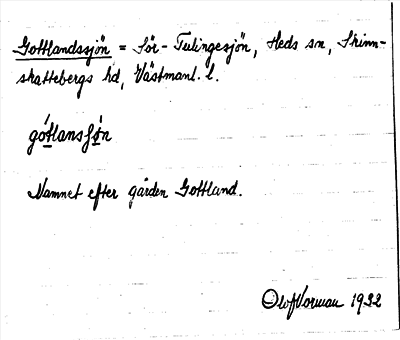 Gottlandssjön = Sör-Tulingesjön, Heds sn, Skinn-
skattebergs hd, Västmanl. l.
Namnet efter gården Gottland.
Olof Vorman 1932